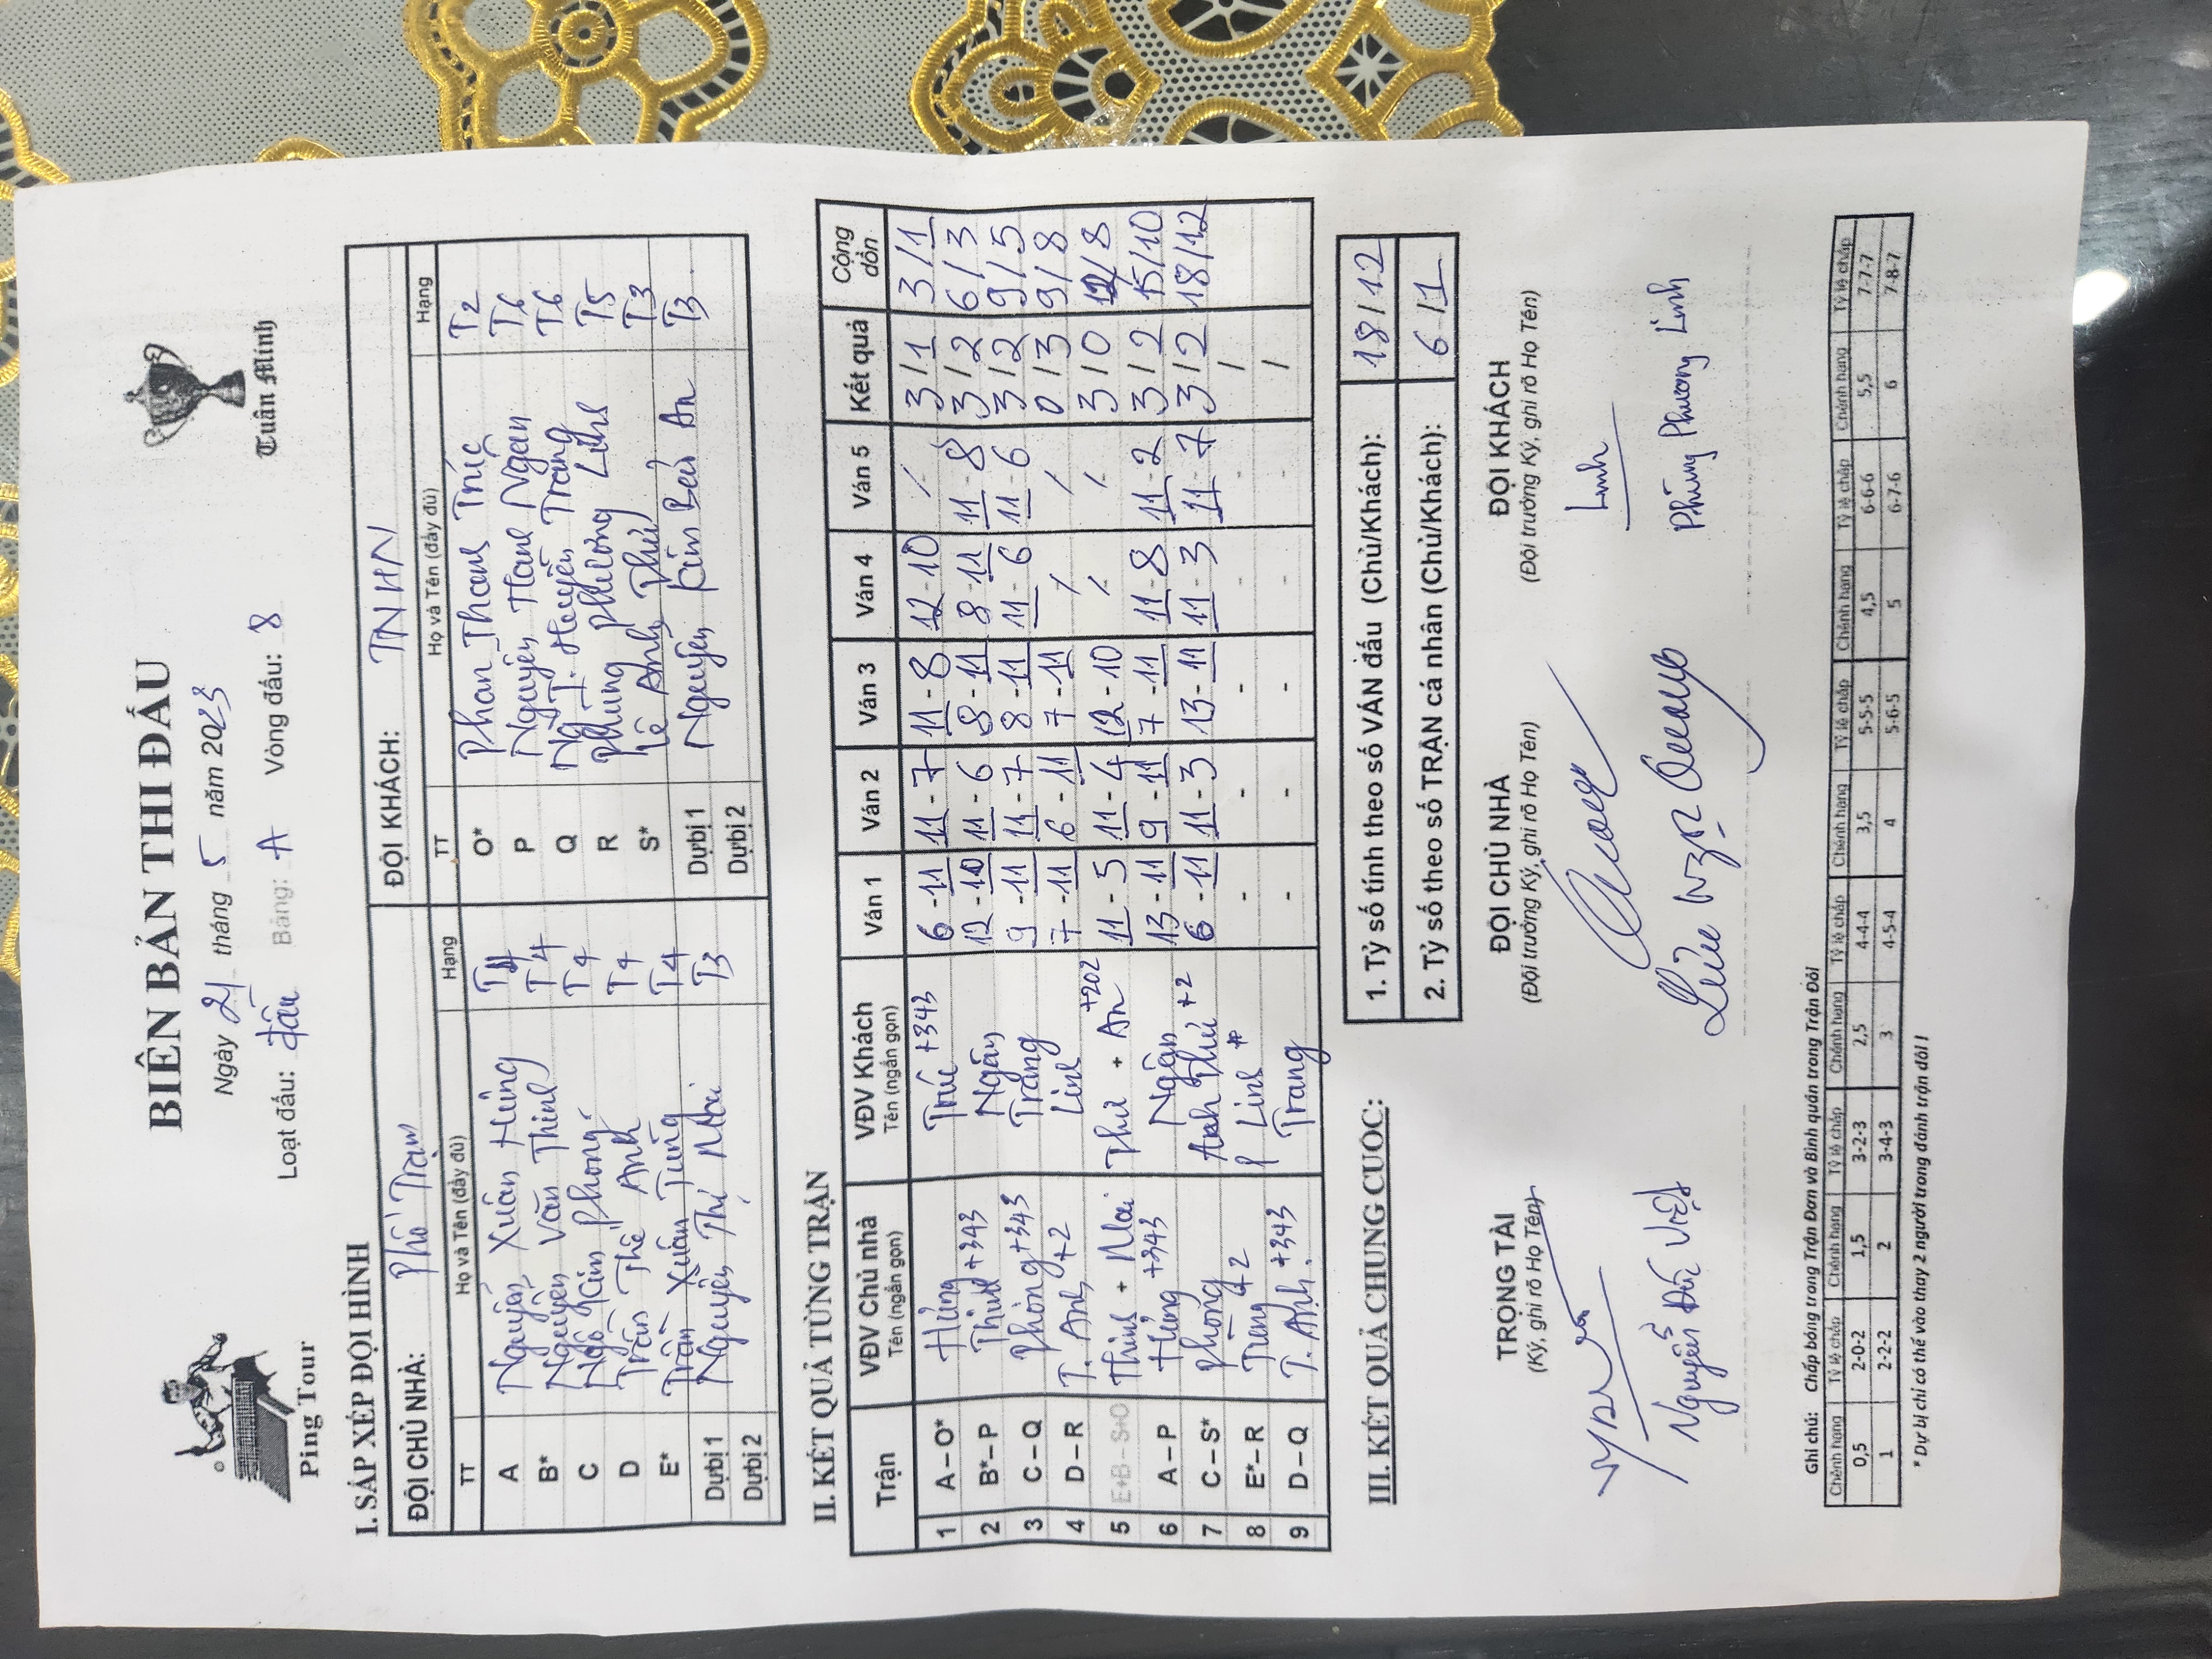 BIÊN BẢN THI ĐẤU
Ping Tour
Tuân Minh
Ngày 21 tháng 5 năm 2023
Loạt đấu: đấu Bảng: A Vòng đấu: 8
I. SẮP XẾP ĐỘI HÌNH
ĐỘI CHỦ NHÀ: Phố Trạm ĐỘI KHÁCH: TNHN
TT Họ và Tên (đầy đủ) Hạng TT Họ và Tên (đầy đủ) Hạng
A Nguyễn Xuân Hưng T4 O* Phan Thanh Trúc T2
B* Nguyễn Văn Thịnh T4 P Nguyễn Thanh Ngân T6
C Ngô Kim Phong T4 Q Ng T. Huyền Trang T6
D Trần Thế Anh T4 R Phùng Phương Linh T5
E* Trần Xuân Tùng T4 S* Lê Anh Phú T3
Dự bị 1 Nguyễn Thị Mai T3 Dự bị 1 Nguyễn Kim Bảo An T3
Dự bị 2 Dự bị 2
II. KẾT QUẢ TỪNG TRẬN
Trận VĐV Chủ nhà Tên (ngắn gọn) VĐV Khách Tên (ngắn gọn) Ván 1 Ván 2 Ván 3 Ván 4 Ván 5 Kết quả Cộng dồn
1 A – O* Hưng Trúc +343 6 - 11 11 - 7 11 - 8 12 - 10 / 3 / 1 3 / 1
2 B* – P Thịnh +343 Ngân 12 - 10 11 - 6 8 - 11 8 - 11 11 - 8 3 / 2 6 / 3
3 C – Q Phong +343 Trang 9 - 11 11 - 7 8 - 11 11 - 6 11 - 6 3 / 2 9 / 5
4 D – R T. Anh +2 Linh 7 - 11 6 - 11 7 - 11 / / 0 / 3 9 / 8
5 E+B – S+O Thịnh + Mai Phú + An +202 11 - 5 11 - 4 12 - 10 / / 3 / 0 12 / 8
6 A – P Hưng +343 Ngân 13 - 11 9 - 11 7 - 11 11 - 8 11 - 2 3 / 2 15 / 10
7 C – S* Phong Anh Phú +2 6 - 11 11 - 3 13 - 11 11 - 3 11 - 7 3 / 2 18 / 12
8 E* – R Tùng +2 P Linh - - - - - /
9 D – Q T. Anh +343 Trang - - - - - /
III. KẾT QUẢ CHUNG CUỘC:
1. Tỷ số tính theo số VÁN đấu (Chủ/Khách): 18 / 12
2. Tỷ số theo số TRẬN cá nhân (Chủ/Khách): 6 / 1
TRỌNG TÀI ĐỘI CHỦ NHÀ ĐỘI KHÁCH
(Ký, ghi rõ Họ Tên) (Đội trưởng Ký, ghi rõ Họ Tên) (Đội trưởng Ký, ghi rõ Họ Tên)
Linh
Nguyễn Đức Việt Lưu Ngọc Quang Phùng Phương Linh
Ghi chú: Chấp bóng trong Trận Đơn và Bình quân trong Trận Đôi
Chênh hạng Tỷ lệ chấp Chênh hạng Tỷ lệ chấp Chênh hạng Tỷ lệ chấp Chênh hạng Tỷ lệ chấp Chênh hạng Tỷ lệ chấp Chênh hạng Tỷ lệ chấp
0,5 2-0-2 1,5 3-2-3 2,5 4-4-4 3,5 5-5-5 4,5 6-6-6 5,5 7-7-7
1 2-2-2 2 3-4-3 3 4-5-4 4 5-6-5 5 6-7-6 6 7-8-7
* Dự bị chỉ có thể vào thay 2 người trong đánh trận đôi !